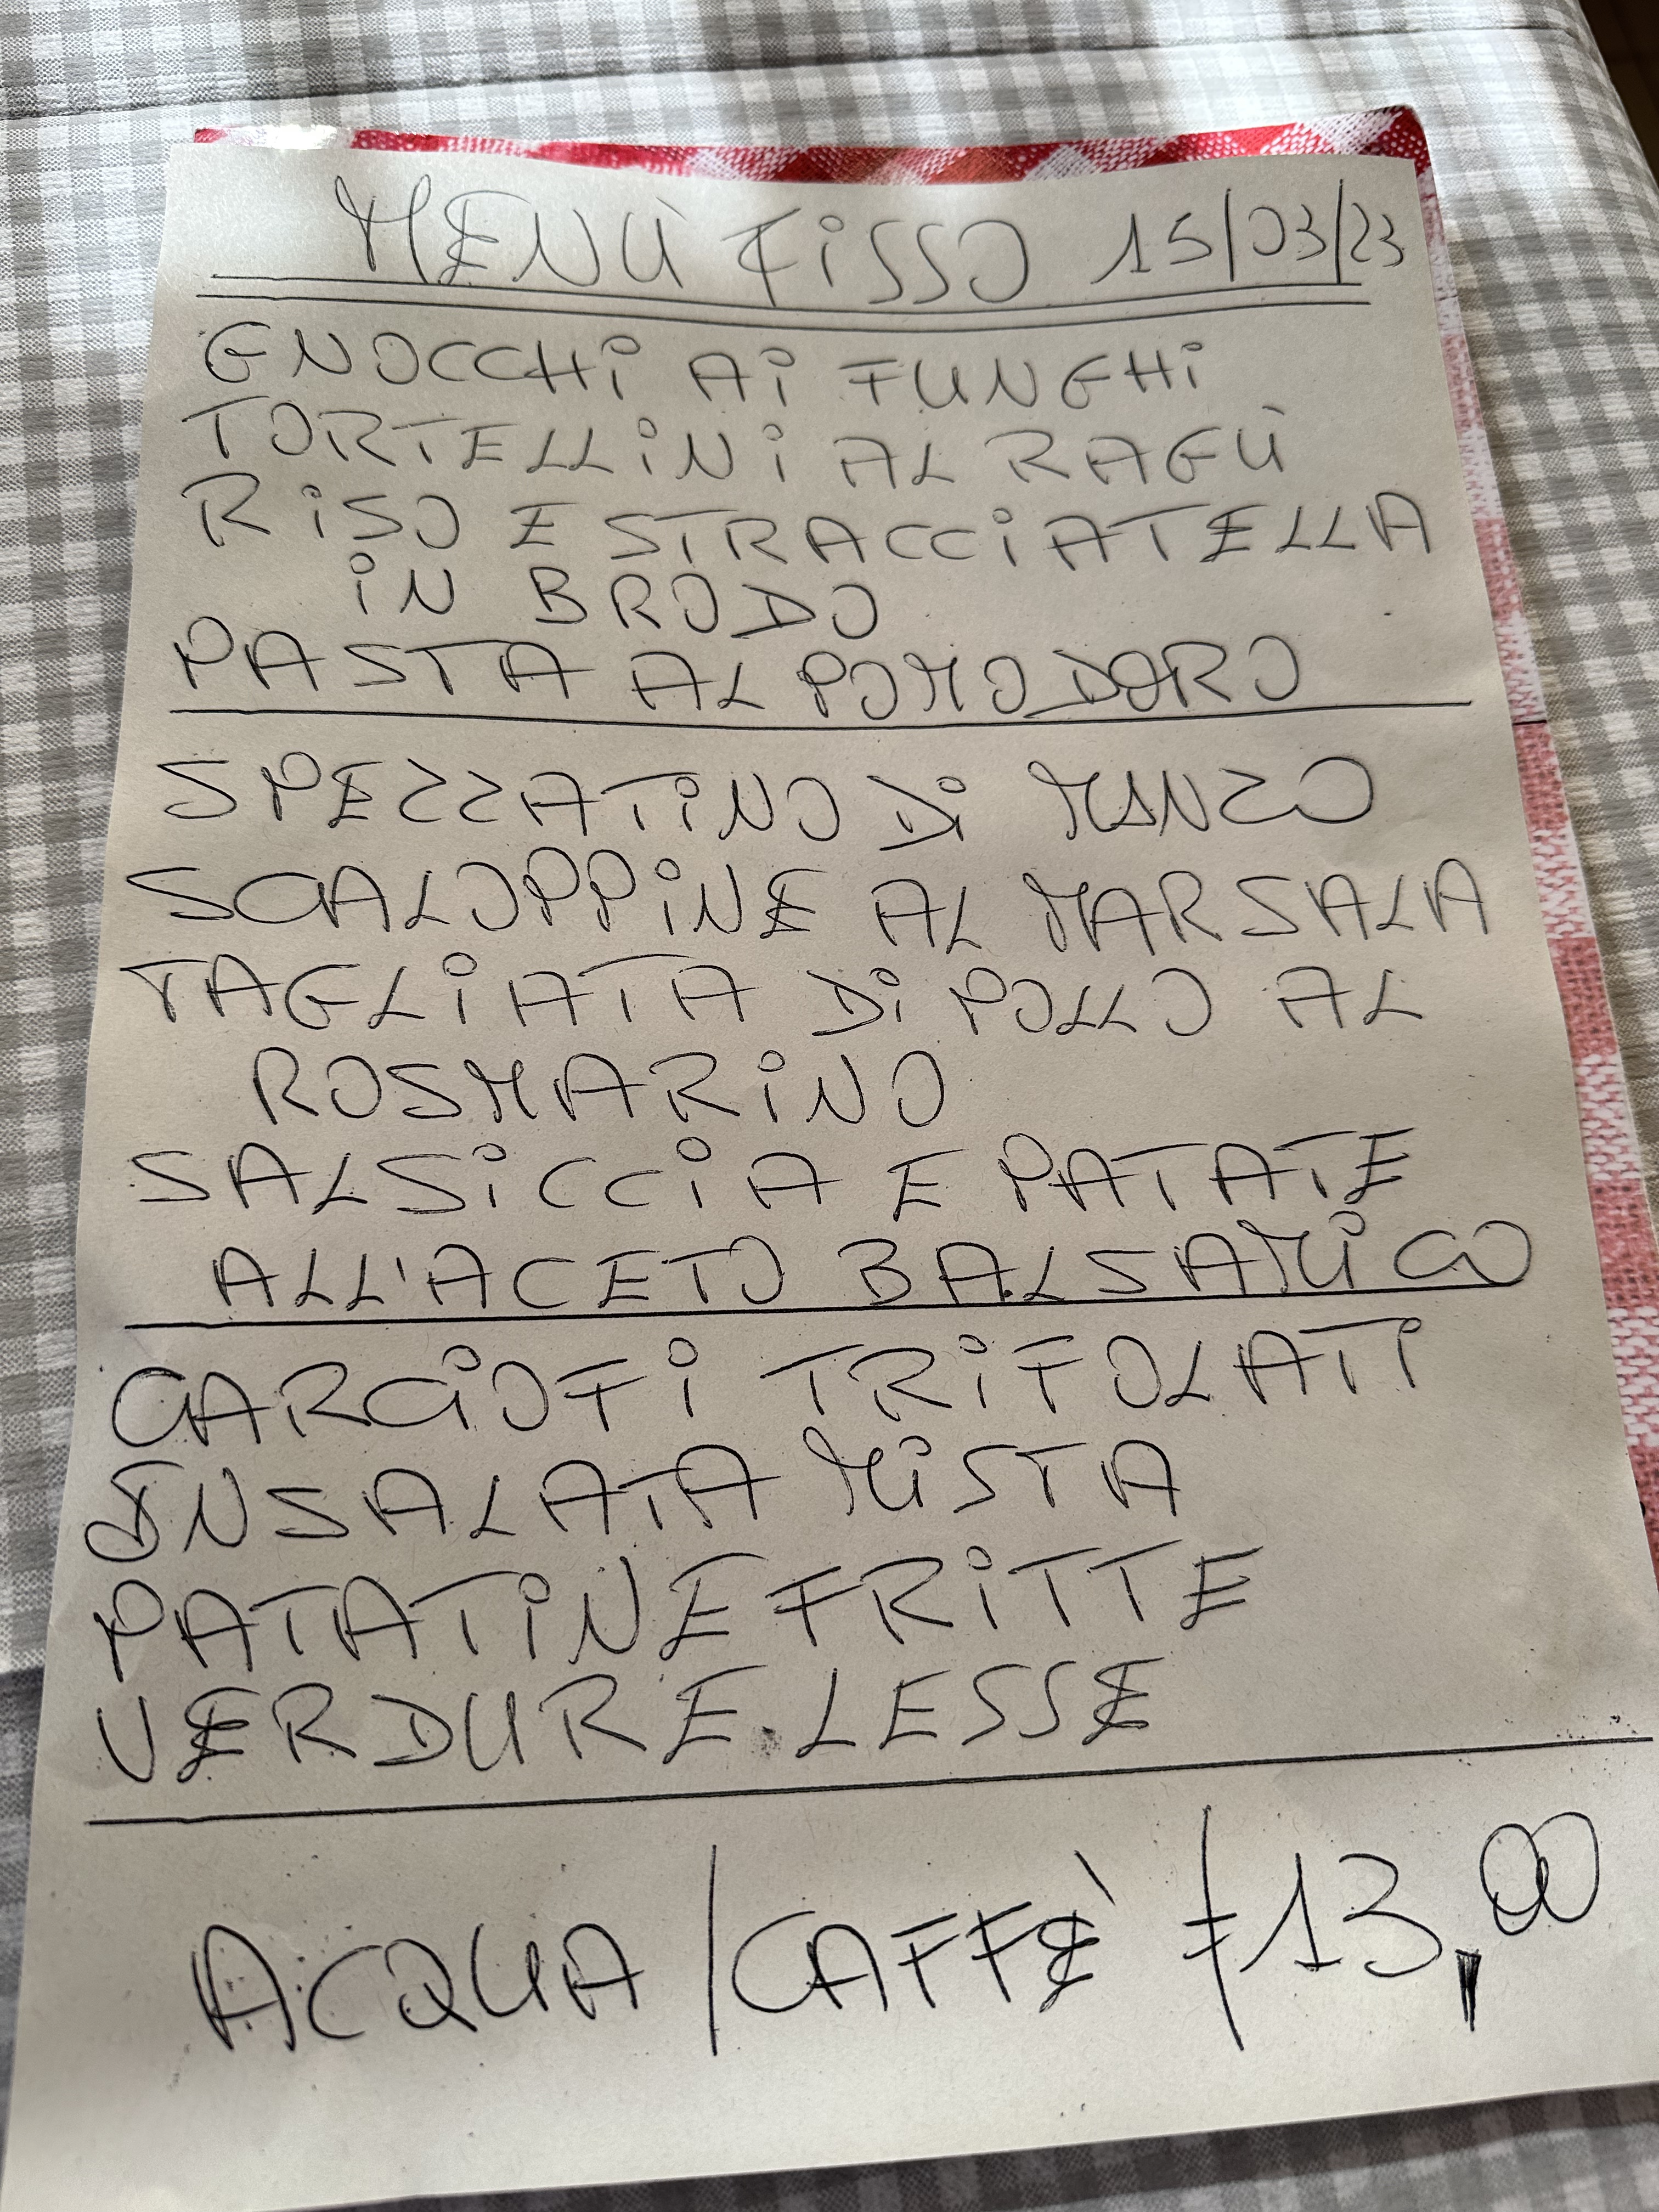 MENÙ FISSO 15/03/23
GNOCCHI AI FUNGHI
TORTELLINI AL RAGÙ
RISO E STRACCIATELLA
IN BRODO
PASTA AL POMODORO
SPEZZATINO DI MANZO
SCALOPPINE AL MARSALA
TAGLIATA DI POLLO AL
ROSMARINO
SALSICCIA E PATATE
ALL'ACETO BALSAMICO
CARCIOFI TRIFOLATI
INSALATA MISTA
PATATINE FRITTE
VERDURE LESSE
ACQUA / CAFFÈ € 13,00